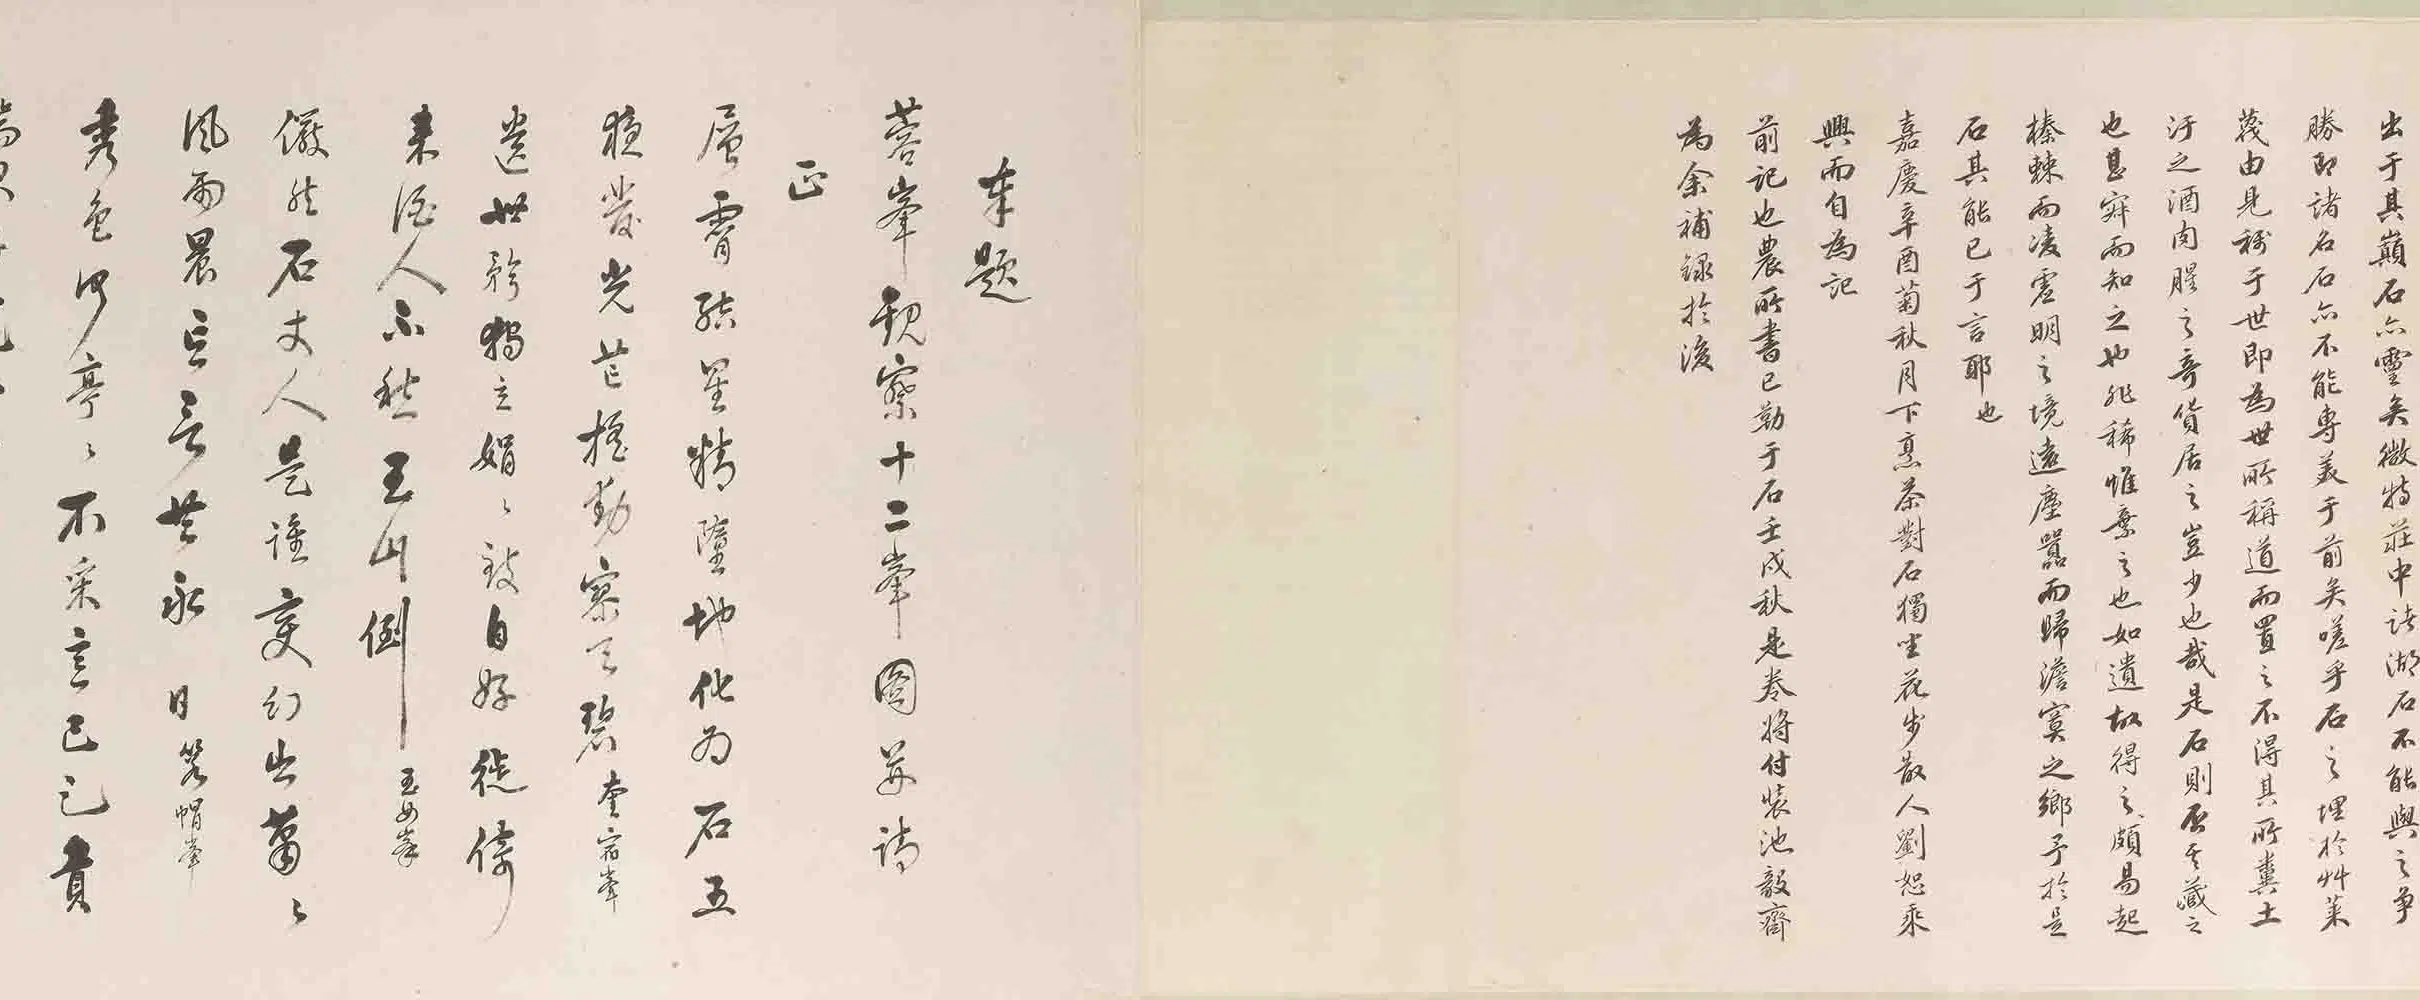 出于其巔石亦靈矣微特莊中諸湖石不能與之爭
勝即諸名石亦不能專美于前矣嗟乎石之埋於艸萊
蔑由見稱于世即為世所稱道而置之不得其所糞土
汙之酒肉腥之奇貨居之豈少也哉是石則
也甚竒而知之也非稀惟棄之也如遺故得之頗易起
榛棘而凌虛明之境遠塵囂而歸澹寞之鄉予於是
石其能已于言耶也
嘉慶辛酉菊秋月下烹茶對石獨坐花步散人劉恕乘
興而自為記
前記也農所書已勒于石壬戌秋是卷將付裝池毅齋
為余補錄於後
奉題
蓉峯觀察十二峯圖并詩
正
層霄結星精墮地化為石五
夜發光芒搖動寥天碧 奎宿峯
遺世矜獨立娟娟致自好徙倚
來酒人不愁玉山倒 玉女峯
儼然石丈人是誰變幻出蕭蕭
風雨晨忘言共永日 箬帽峯
秀色何亭亭不采意已足貴